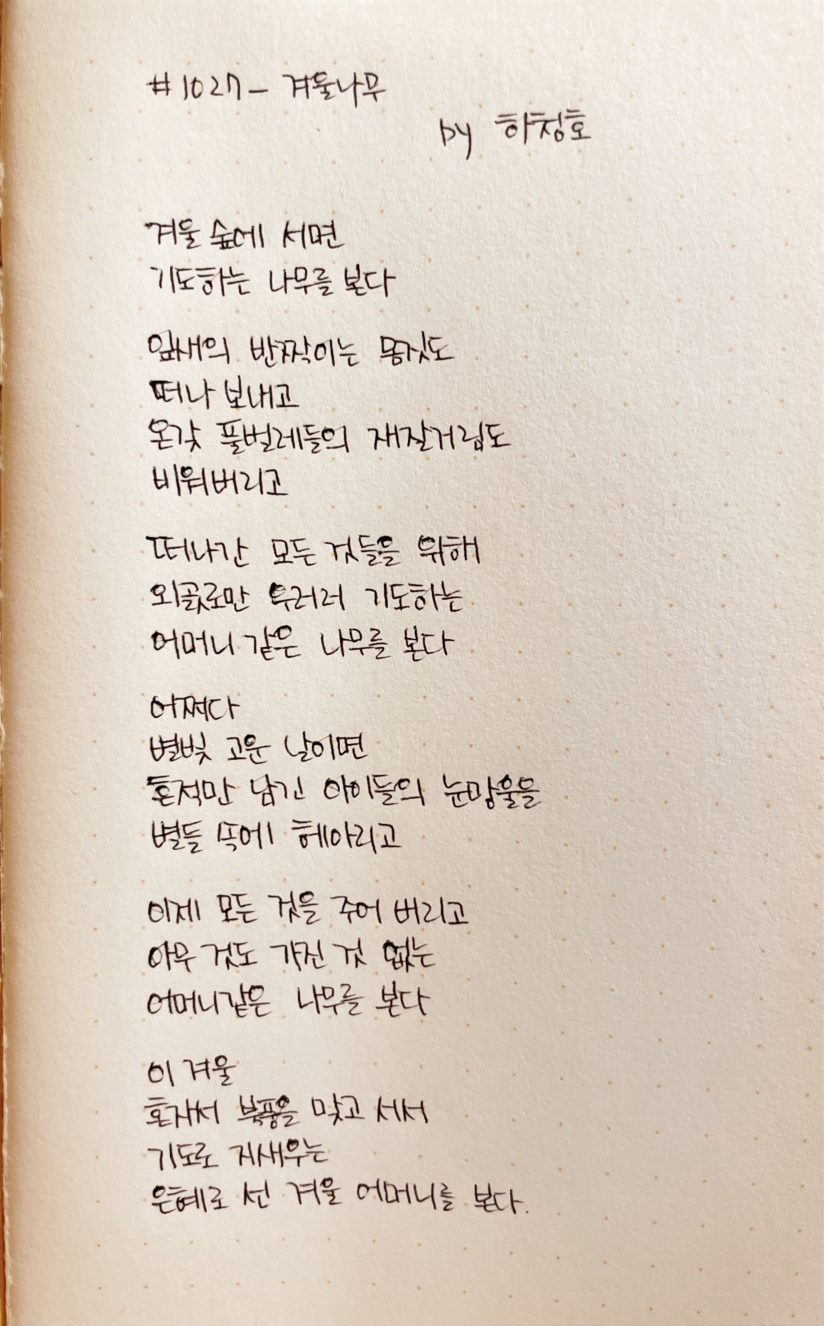 #1027 - 겨울나무
by 하청호
겨울 숲에 서면
기도하는 나무를 본다
잎새의 반짝이는 몸짓도
떠나 보내고
온갖 풀벌레들의 재잘거림도
비워버리고
떠나간 모든 것들을 위해
외곬로만 우러러 기도하는
어머니 같은 나무를 본다
어쩌다
별빛 고운 날이면
흔적만 남긴 아이들의 눈망울을
별들 속에 헤아리고
이제 모든 것을 주어 버리고
아무 것도 가진 것 없는
어머니같은 나무를 본다
이 겨울
혼자서 북풍을 맞고 서서
기도로 지새우는
은혜로 선 겨울 어머니를 본다.